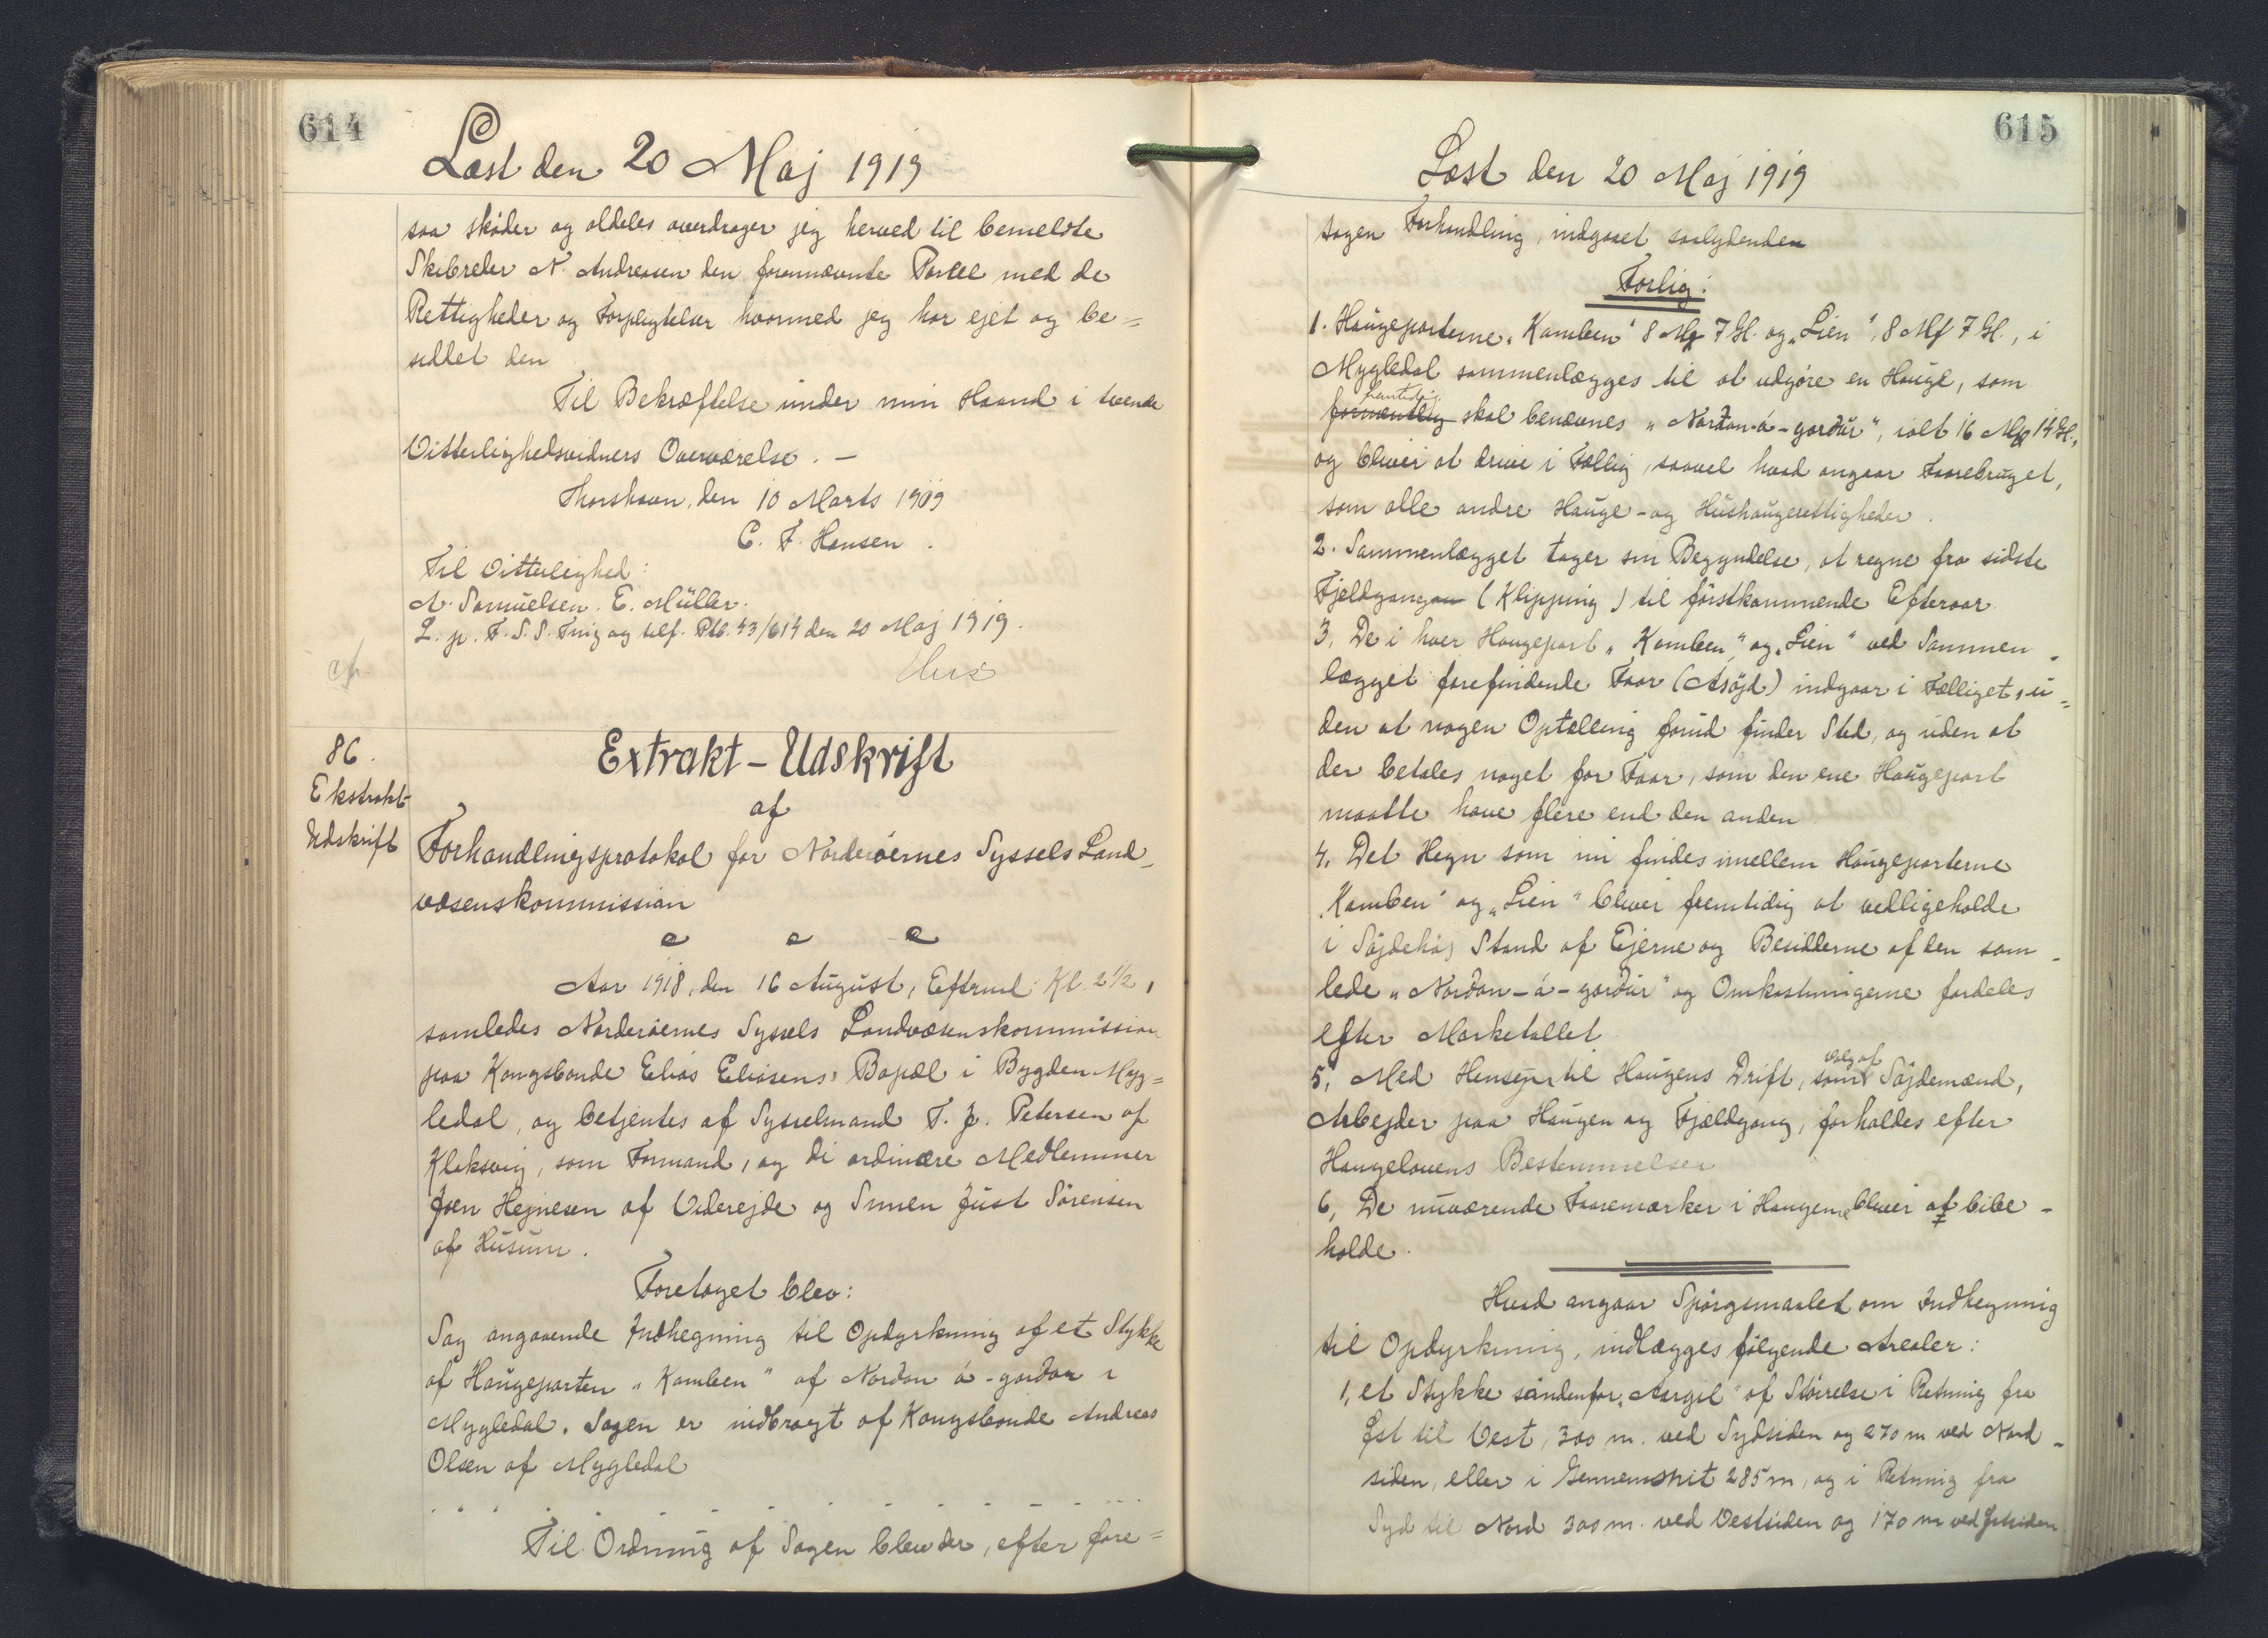 614
Læst den 20 Maj 1919
saa skøder og aldeles overdrager jeg herved til bemeldte
Skibsreder N. Andreasen den forannævnte Parcel med de
Rettigheder og Forpligtelser hvormed jeg har ejet og be=
siddet den
Til Bekræftelse under min Haand i tvende
Vitterlighedsvidners Overværelse. —
Thorshavn, den 10 Marts 1909
C. F. Hansen.
Til Vitterlighed:
N. Samuelsen. E. Müller.
L. p. F. S. S. Ting og tilf. Ptb. 43/614 den 20 Maj 1919.
86.
Ekstrakt-
Udskrift
Extrakt-Udskrift
af
Forhandlingsprotokol for Norderøernes Syssels Land-
væsenskommission
Aar 1918, den 16 August, Eftrmd. Kl. 2 1/2,
samledes Norderøernes Syssels Landvæsenskommission
paa Kongsbonde Elias Eliasens Bopæl i Bygden Myg=
ledal, og betjentes af Sysselmand T. J. Petersen af
Klaksvig, som Formand, og de ordinære Medlemmer
Joen Hejnesen af Viderejde og Simen Just Sørensen
af Husum.
Foretaget blev:
Sag angaaende Indhegning til Opdyrkning af et Stykke
af Haugeparten "Kamben" af Nordan á-gordar i
Mygledal. Sagen er indbragt af Kongsbonde Andreas
Olsen af Mygledal
. . . . - - - - - - - - ...
Til Ordning af Sagen blev der, efter fore=
615
Læst den 20 Maj 1919
tagen Forhandling, indgaaet saalydende
Forlig:
1. Haugeparterne "Kamben" 8 Mk 7 Gl. og "Lien", 8 Mk 7 Gl., i
Mygledal sammenlægges til at udgøre en Hauge, som
fremtidig
formentlig skal benævnes "Nordan-á-gordur", ialt 16 Mk 14 Gl.,
og bliver at drive i Fællig, saavel hvad angaar Faarebruget,
som alle andre Hauge- og Hushaugerettigheder.
2. Sammenlægget tager sin Begyndelse, at regne fra sidste
Fjeldgang (Klipping) til førstkommende Efteraar.
3, De i hver Haugepart "Kamben" og "Lien" ved Sammen-
lægget forefindende Faar (Asøjd) indgaar i Fælliget, u=
den at nogen Optælling forud finder Sted, og uden at
der betales noget for Faar, som den ene Haugepart
maatte have flere end den anden
4, Det Hegn som nu findes imellem Haugeparterne
"Kamben" og "Lien" bliver fremtidig at vedligeholde
i Søjdehøj Stand af Ejerne og Besidderne af den sam-
lede "Nordan-á-gordur" og Omkostningerne fordeles
efter Marketallet
5, Med Hensyn til Haugens Drift, som Valg af Søjdemænd,
Arbejder paa Haugen og Fjældgang, forholdes efter
Haugelovens Bestemmelser
6, De nuværende Faaremærker i Haugerne bliver at bibe-
holde.
Hvad angaar Spørgsmaalet om Indhegning
til Opdyrkning, indlægges følgende Arealer:
1, et Stykke søndenfor "Aargil" af Størrelse i Retning fra
Øst til Vest, 300 m. ved Sydsiden og 270 m ved Nord-
siden, eller i Gennemsnit 285 m, og i Retning fra
Syd til Nord 300 m. ved Vestsiden og 170 m ved Østsiden